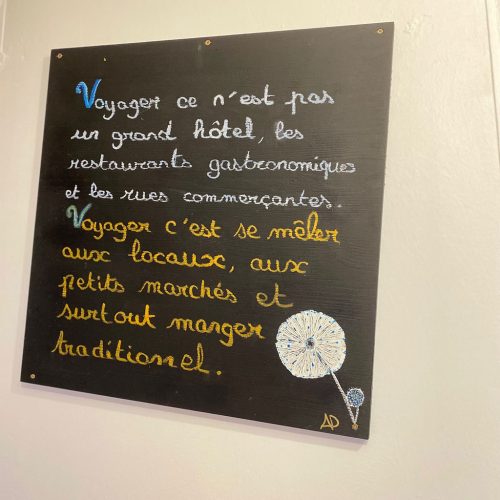 Voyager ce n'est pas
un grand hôtel, les
restaurants gastronomiques
et les rues commerçantes.
Voyager c'est se mêler
aux locaux, aux
petits marchés et
surtout manger
traditionnel.
AD